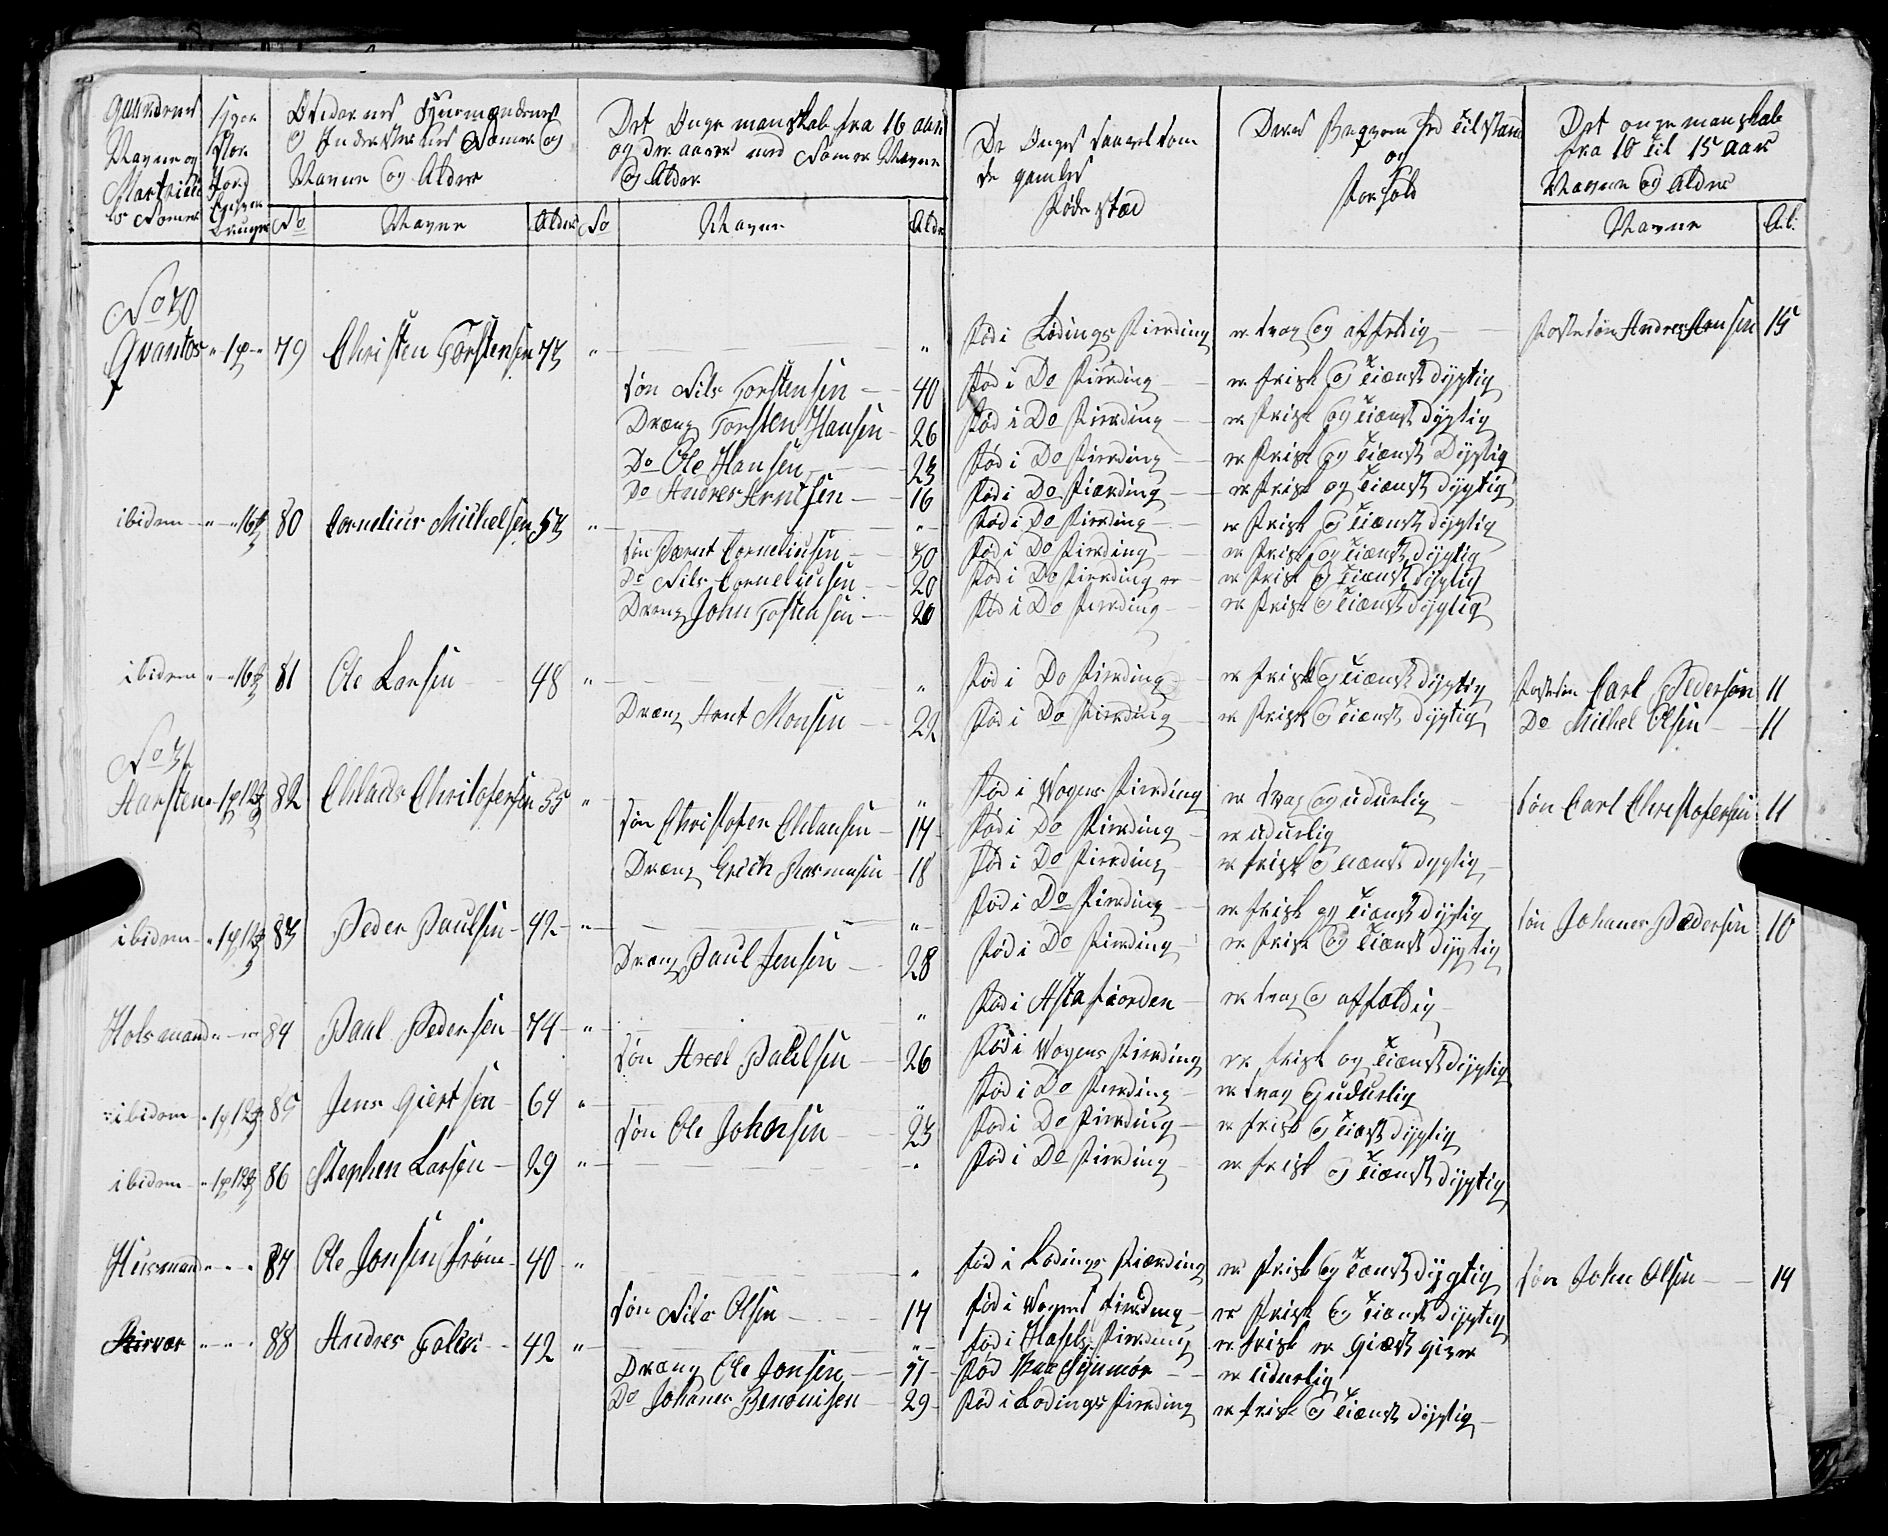 Gaardenes
Navne og
Hvor
Opsiderenes Husmændenes
og Indersternes Nomer og
Navne og Alder
Det Unge manskab fra 16 aar
og der over med Nomer Navne
og Alder
De Unges saavelsom
de gamles
Føde stæd
Deres
og
forhold
Det unge manskab
fra 10 til 15 aar
Navne og Alder
No Navne Alder No Navne Alder Navne Al.
No 30
Qvantos 79 Christen Torstensen 73 Fød i Lødings Fierding er svag og affeldig Andres 15
søn Nils Torstensen 40 Fød i Do Fierding er frisk og tienst dygtig
Dræng Torsten Hansen 26 Fød i Do Fierding er frisk og tienst dygtig
Do Ole Hansen 23 Fød i Do Fierding er frisk og tienst dygtig
Do Andres Arntsen 16 Fød i Do Fierding er frisk og tienst dygtig
ibidem 80 Cornelius Mickelsen 53 Fød i Do Fierding er frisk og tienst dygtig
søn Bernt Corneliusen 30 Fød i Do Fierding er frisk og tienst dygtig
Do Nils Corneliusen 20 Fød i Do Fierding er frisk og tienst dygtig
Dreng John Tostensen 20 Fød i Do Fierding er frisk og tienst dygtig
ibidem 81 Ole Larsen 48 Fød i Do Fierding er frisk og tienst dygtig Carl Pedersøn 11
Dræng Arnt Monsen 22 Fød i Do Fierding er frisk og tienst dygtig Do Michel Olsen 11
No 31
Harsten 82 Chlaus Christofersen 55 Fød i Wogens Fierding er svag og udurlig søn Carl Christofersen 11
søn Christofer Chlausen 17 Fød i Do Fierding er udurlig
Dræng Erich Rasmusen 18 Fød i Do Fierding er frisk og tienst dygtig
ibidem 83 Peder Paulsen 42 Fød i Do Fierding er frisk og tienst dygtig søn Johanes Pedersen 10
Dræng Paul Jensen 28 Fød i Do Fierding er frisk og tienst dygtig
Holsmand 84 Paul Pedersen 74 Fød i Astafiorden er svag og affældig
søn Axel Paulsen 26 Fød i Wogens Fierding er frisk og tienst dygtig
ibidem 85 Jens Giertsen 64 Fød i Do Fierding er svag og udurlig
søn Ole Johansen 23 Fød i Do Fierding er frisk og tienst dygtig
ibidem 86 Stephen Larsen 29 Fød i Do Fierding er frisk og tienst dygtig
Husmand 87 Ole Jonsen 40 Fød i Lødings Fierding er frisk og tienst dygtig søn John Olsen 14
søn Nils Olsen 17 Fød i Wogens Fierding er frisk og tienst dygtig
88 Andres 42 Fød i Fierding er frisk er giæst giver
Dræng Ole Jonsen 51 Fød er udurlig
Do Johanes Benonisen 29 Fød i Lødings Fierding er frisk og tienst dygtig